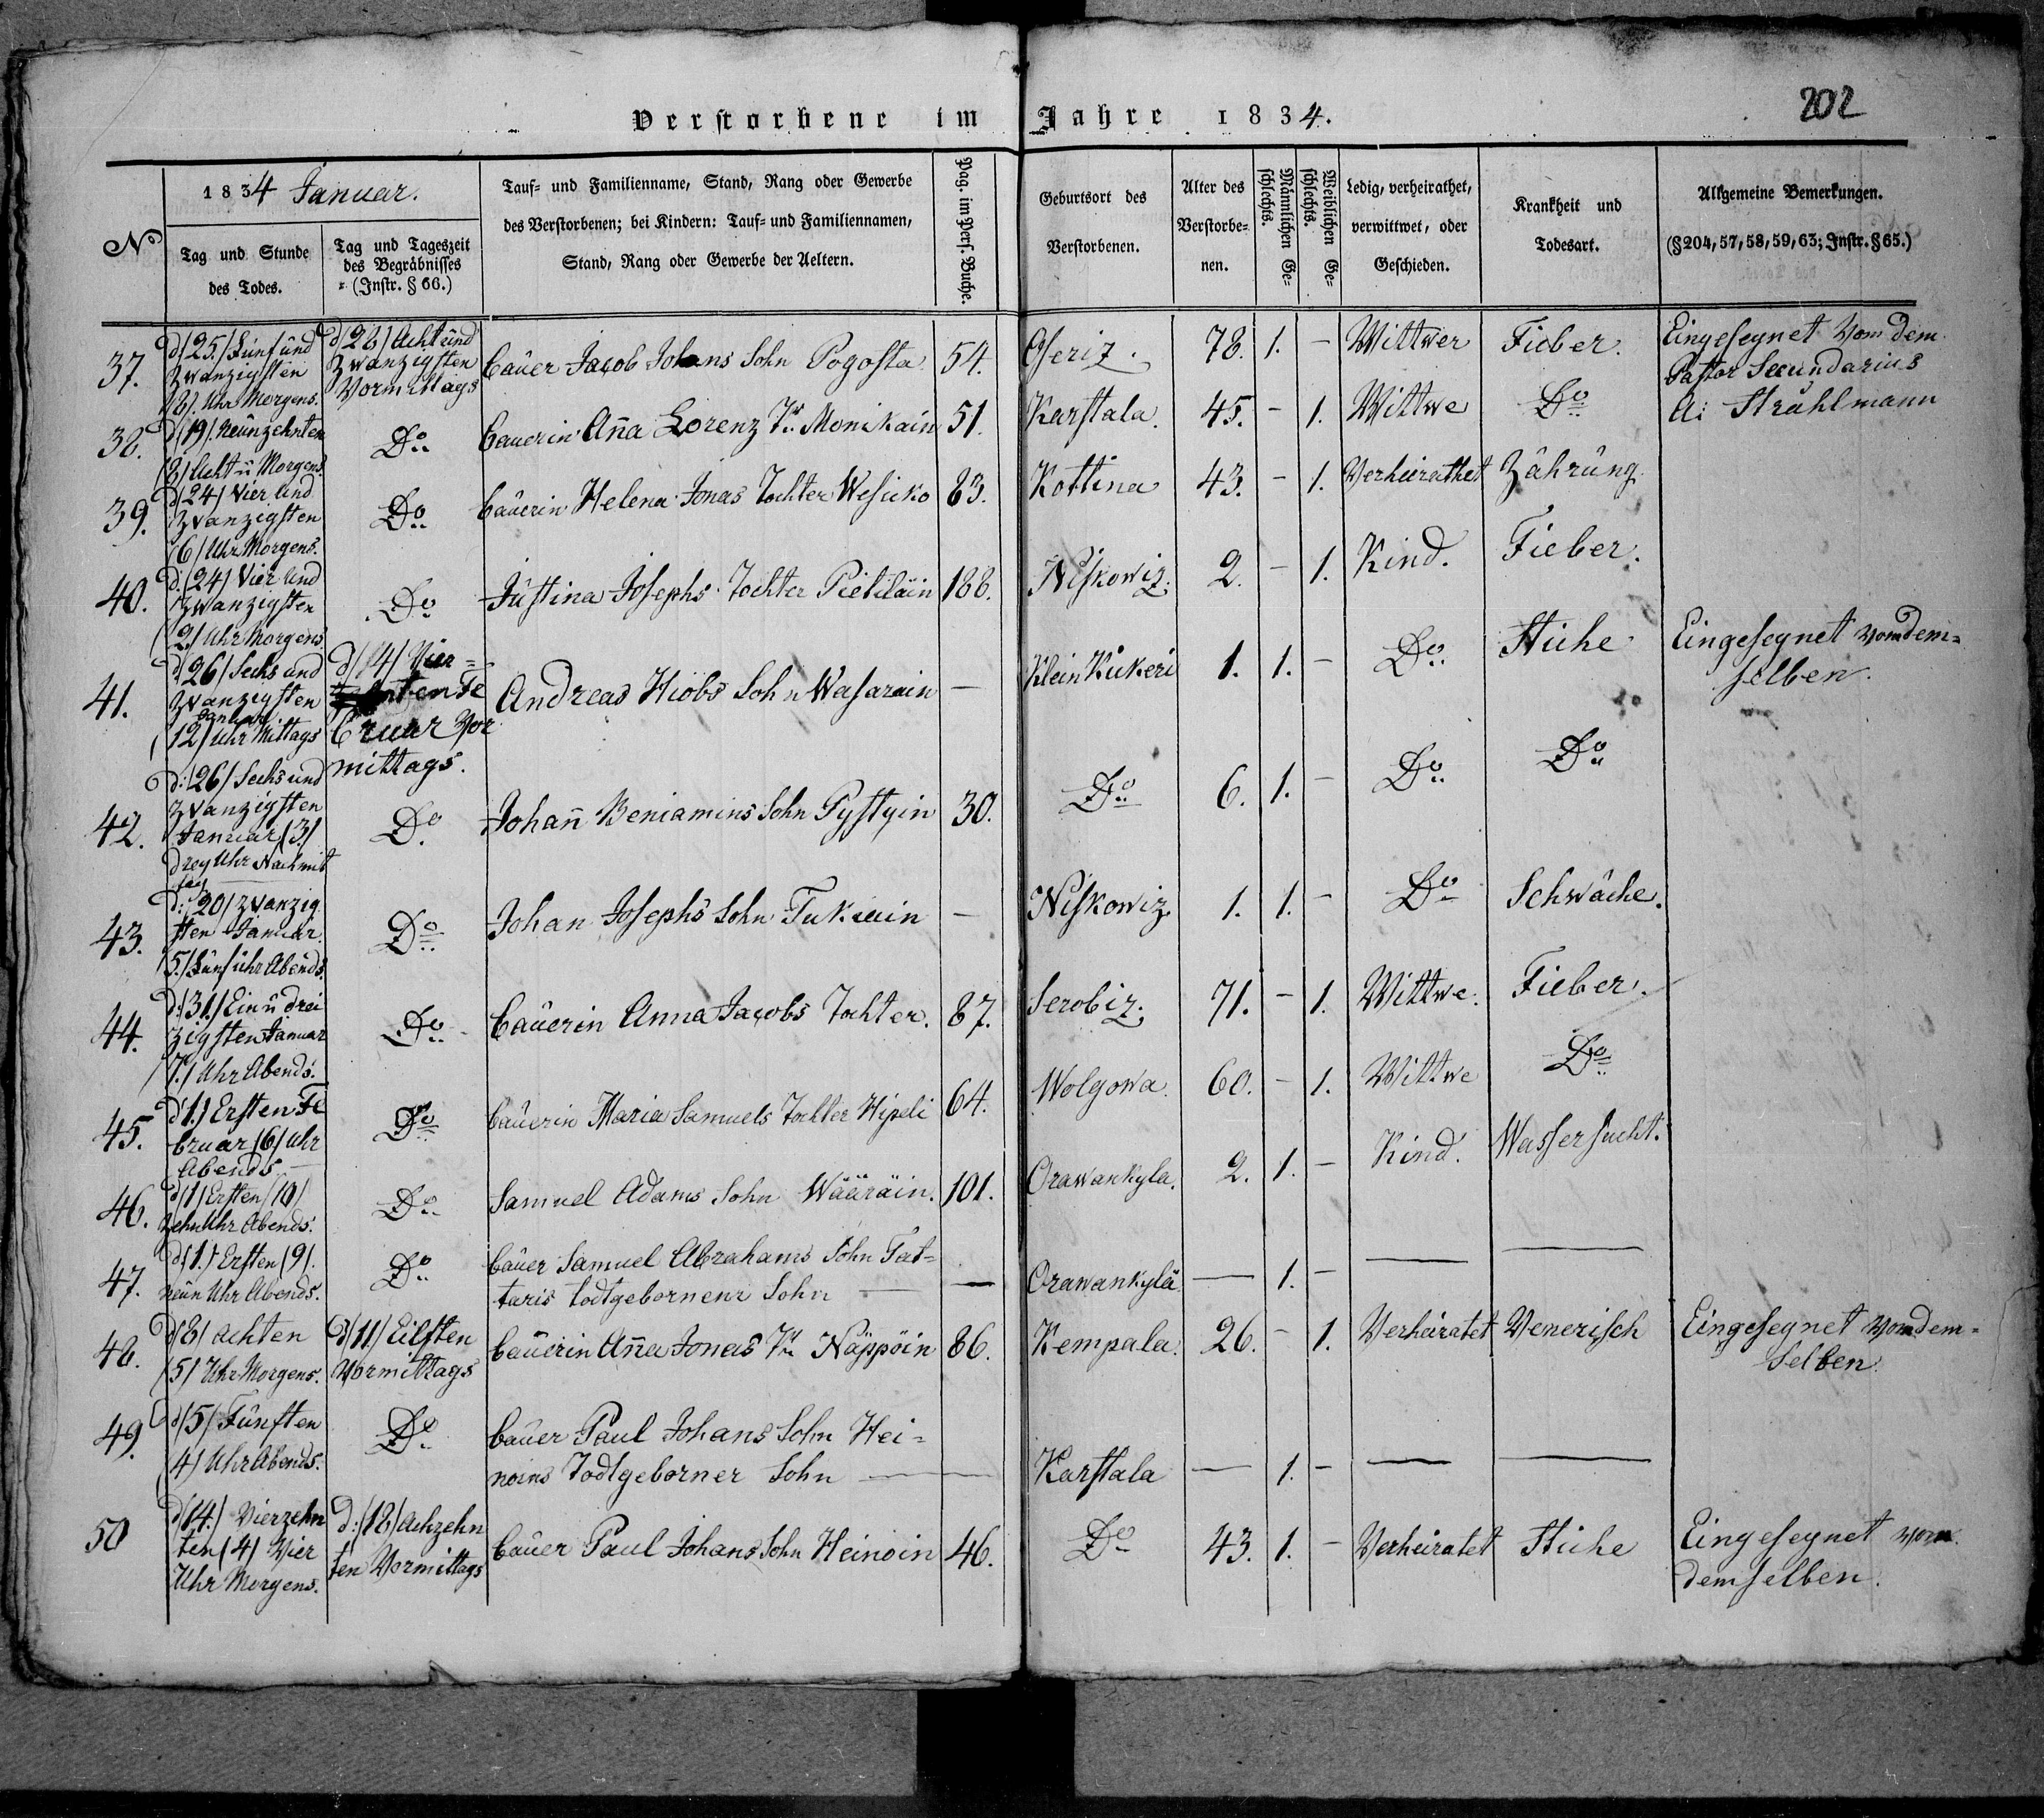 Verstorbene im Jahre 1834.
202
No
1834 Januar.
Tag und Stunde des Todes.
Tag und Tageszeit des Begräbnisses (Instr. § 66.)
Tauf- und Familienname, Stand, Rang oder Gewerbe
des Verstorbenen; bei Kindern: Tauf- und Familiennamen,
Stand, Rang oder Gewerbe der Aeltern.
Pag. im Pers. Buche.
Geburtsort des Verstorbenen.
Alter des Verstorbenen.
Männlichen Geschlechts.
Weiblichen Geschlechts.
Ledig, verheirathet, verwittwet, oder Geschieden.
Krankheit und Todesart.
Allgemeine Bemerkungen.
(§ 204, 57, 58, 59, 63; Instr. § 65.)
37. d/25./ Fünf und Zwanzigsten /8/ Uhr Morgens. d/28/ Acht und Zwanzigsten Vormittags Bauer Jacob Johans Sohn Pogosta 54. Oseriz. 78. 1. – Wittwer Fieber. Eingesegnet vom dem Pastor Secundarius A: Strahlmann
38. d/19/. Neunzehnten /8/ Acht u Morgens. Do Bauerin Anna Lorenz Tr Monikain 51. Karstala. 45. – 1. Wittwe Do
39. d/24/ Vier und Zwanzigsten /6/ Uhr Morgens. Do Bäuerin Helena Jonas Tochter Wesiko 83. Kottina 43. – 1. Verheirathet Zährung.
40. d:/24/ Vier und Zwanzigsten /2/ Uhr Morgens Do Justina Josephs Tochter Pietiläin 188. Niskowiz. 2. – 1. Kind. Fieber.
41. d/26/ Sechs und Zwanzigsten Januar /12/ Uhr Mittags d/14/ Vierzehnten Februar Vormittags. Andreas Hiobs Sohn Wasarain – Klein Kukeri 1. 1. – Do Stiche Eingesegnet vom demselben.
42. d:/26/ Sechs und Zwanzigsten Januar /3/ drey Uhr Nachmittag Do Johann Beniamins Sohn Pystyin 30. Do 6. 1. – Do Do
43. d:/20/ Zwanzigsten Januar. /5./ Fünf uhr Abends. Do Johan Josephs Sohn Tukiain – Niskowiz. 1. 1. – Do Schwäche.
44. d:/31./ Ein u dreizigsten Januar /7./ Uhr Abends. Do Bäuerin Anna Jacobs Tochter. 87. Serobiz. 71. – 1. Wittwe. Fieber.
45. d/1./ Ersten Februar /6/ Uhr Abends. – Do Bäuerin Maria Samuels Tochter Hipeli 64. Wolgowa. 60. – 1. Wittwe Do
46. d/1/ Ersten /10/ Zehn Uhr Abends. Do Samuel Adams Sohn Wääräin. 101. Orawankyla. 2. 1. – Kind. Wassersucht.
47. d/1./ Ersten /9/. neun Uhr Abends. Do Bäuer Samuel Abrahams Sohn Tattaris todtgebornenr Sohn — — Orawankylä — 1. – — —
48. d/8/ Achten /5/ Uhr Morgens. d/11/ Eilften Vormittags Bäuerin Anna Jonas Tr Näppöin 86. Kempala. 26. – 1. Verheiratet Venerisch Eingesegnet vom demselben.
49. d/5/ Fünften /4/ Uhr Abends. Do Bäuer Paul Johans Sohn Heinoins Todtgeborner Sohn — Karstala — 1. – — —
50 d/14./ Vierzehnten /4/ Vier Uhr Morgens. d:/18/ Achzehnten Vormittags Bäuer Paul Johans Sohn Heinoin 46. Do 43. 1. – Verheiratet Stiche Eingesegnet vom demselben.